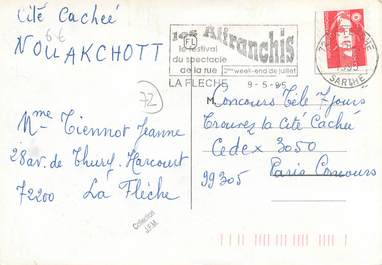 Cité Cacheé
6€
NOUAKCHOTT
les Affranchis
FL
le festival
du spectacle
de la rue
2ème week-end de juillet
LA FLECHE 9-5-95
SARTHE
72
Mme Tiennot Jeanne
28 av. de Thury. Harcourt
72200 La Flèche
M Concours Télé 7 jours
Trouvez la Cité Cachée
Cedex 3050
99305 Paris Concours
Collection
J.F.M.